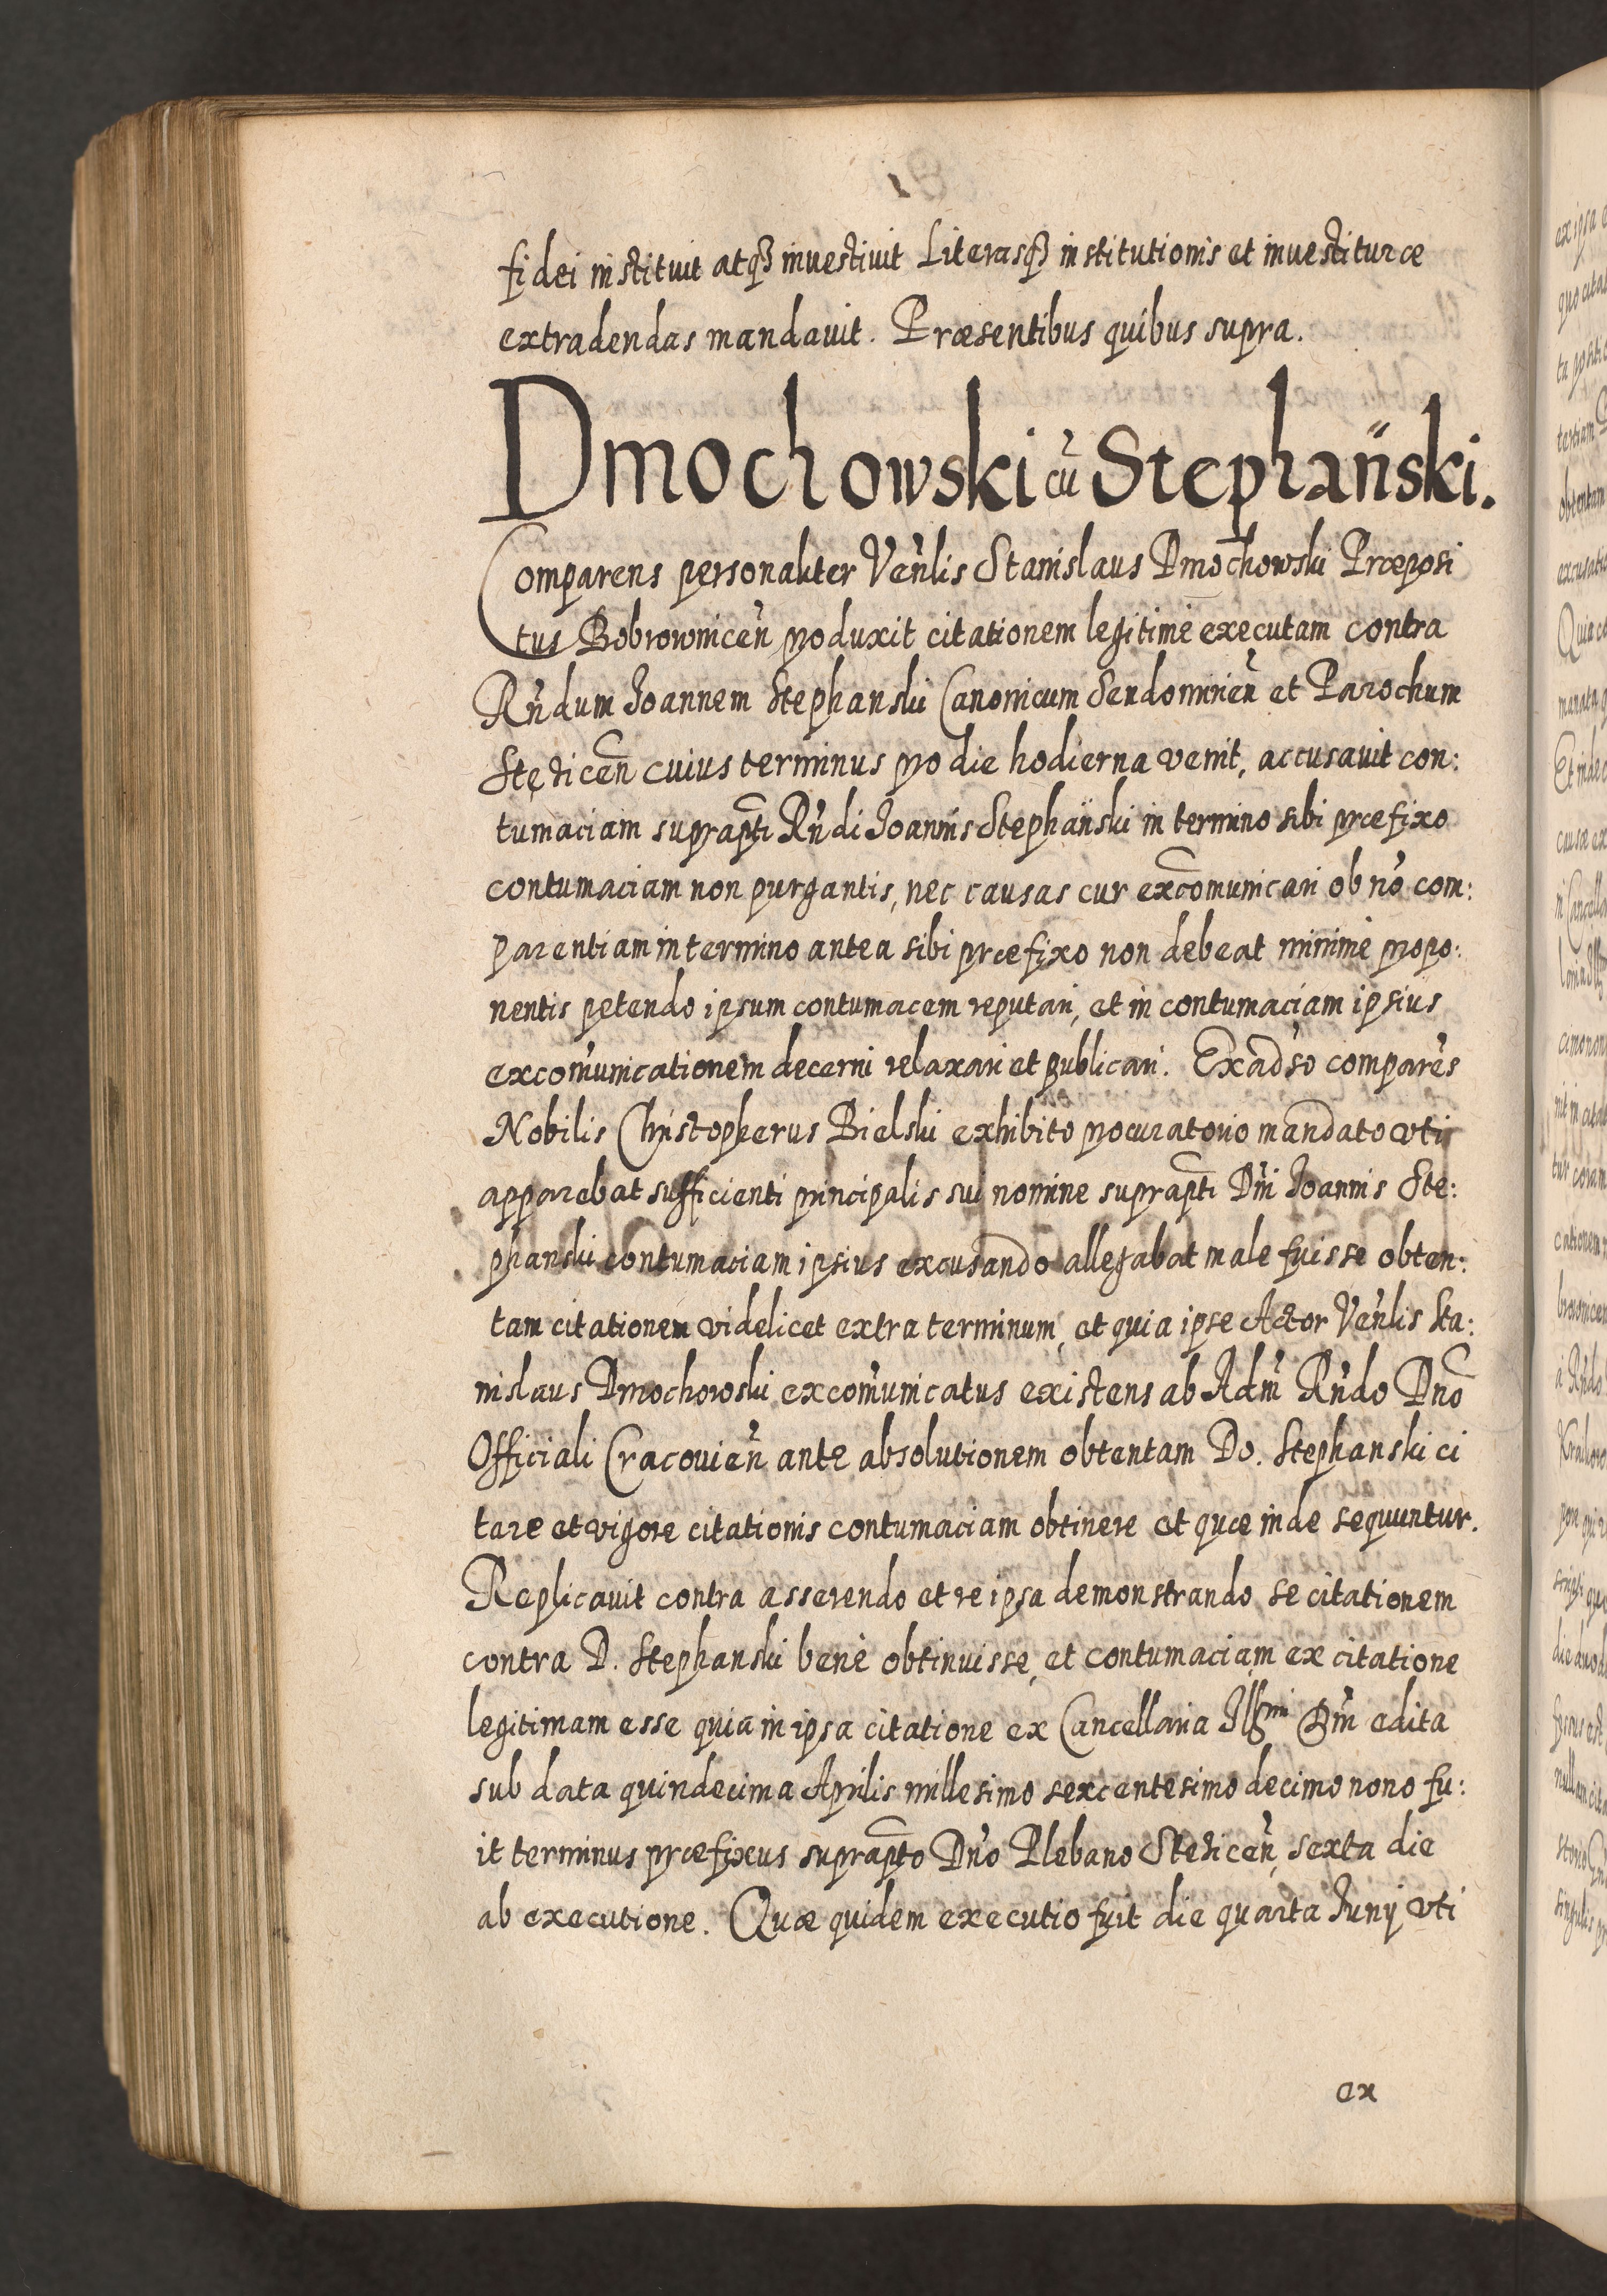 fidei instituit atqꝫ inuestiuit Literasqꝫ institutionis et inuestituræ
extradendas mandauit. Præsentibus quibus supra.
Dmochowski cū Stephański.
Comparens personaliter Ven̄lis Stanislaus Dmochowski Præposi
tus Bobrownicen̄ produxit citationem legitime executam contra
Rn̄dum Joannem Stephanski Canonicum Sendomirien̄ et Parochum
Stęzicen̄ cuius terminus pro die hodierna venit, accusauit con:
tumaciam suprapti Rn̄di Joannis Stephański in termino sibi præfixo
contumaciam non purgantis, nec causas cur excōmunicari ob nō com:
parentiam in termino antea sibi præfixo non debeat minime propo:
nentis petendo ipsum contumacem reputari, et in contumaciam ipsius
excōmunicationem decerni relaxari et publicari. Exaduso comparēs
Nobilis Christopherus Bielski exhibito procuratorio mandato vti
apparebat sufficienti principalis sui nomine suprapti Dn̄i Joannis Ste:
phanski contumaciam ipsius excusando allegabat male fuisse obten:
tam citationem videlicet extra terminum, et quia ipse Actor Ven̄lis Sta:
nislaus Dmochowski excōmunicatus existens ab Adm̄ Rn̄do Dn̄o
Officiali Cracouien̄ ante absolutionem obtentam Do. Stephanski ci
tare et vigore citationis contumaciam obtinere et quæ inde sequuntur.
Replicauit contra asserendo et re ipsa demonstrando se citationem
contra D. Stephanski benè obtinuisse, et contumaciam ex citatione
legitimam esse quia in ipsa citatione ex Cancellaria Illmi Dn̄i edita
sub data quindecima Aprilis millesimo sexcentesimo decimo nono fu:
it terminus præfixus suprapto Dn̄o Plebano Stezicen̄ sexta die
ab executione. Quæ quidem executio fuit die quarta Junij vti
ex